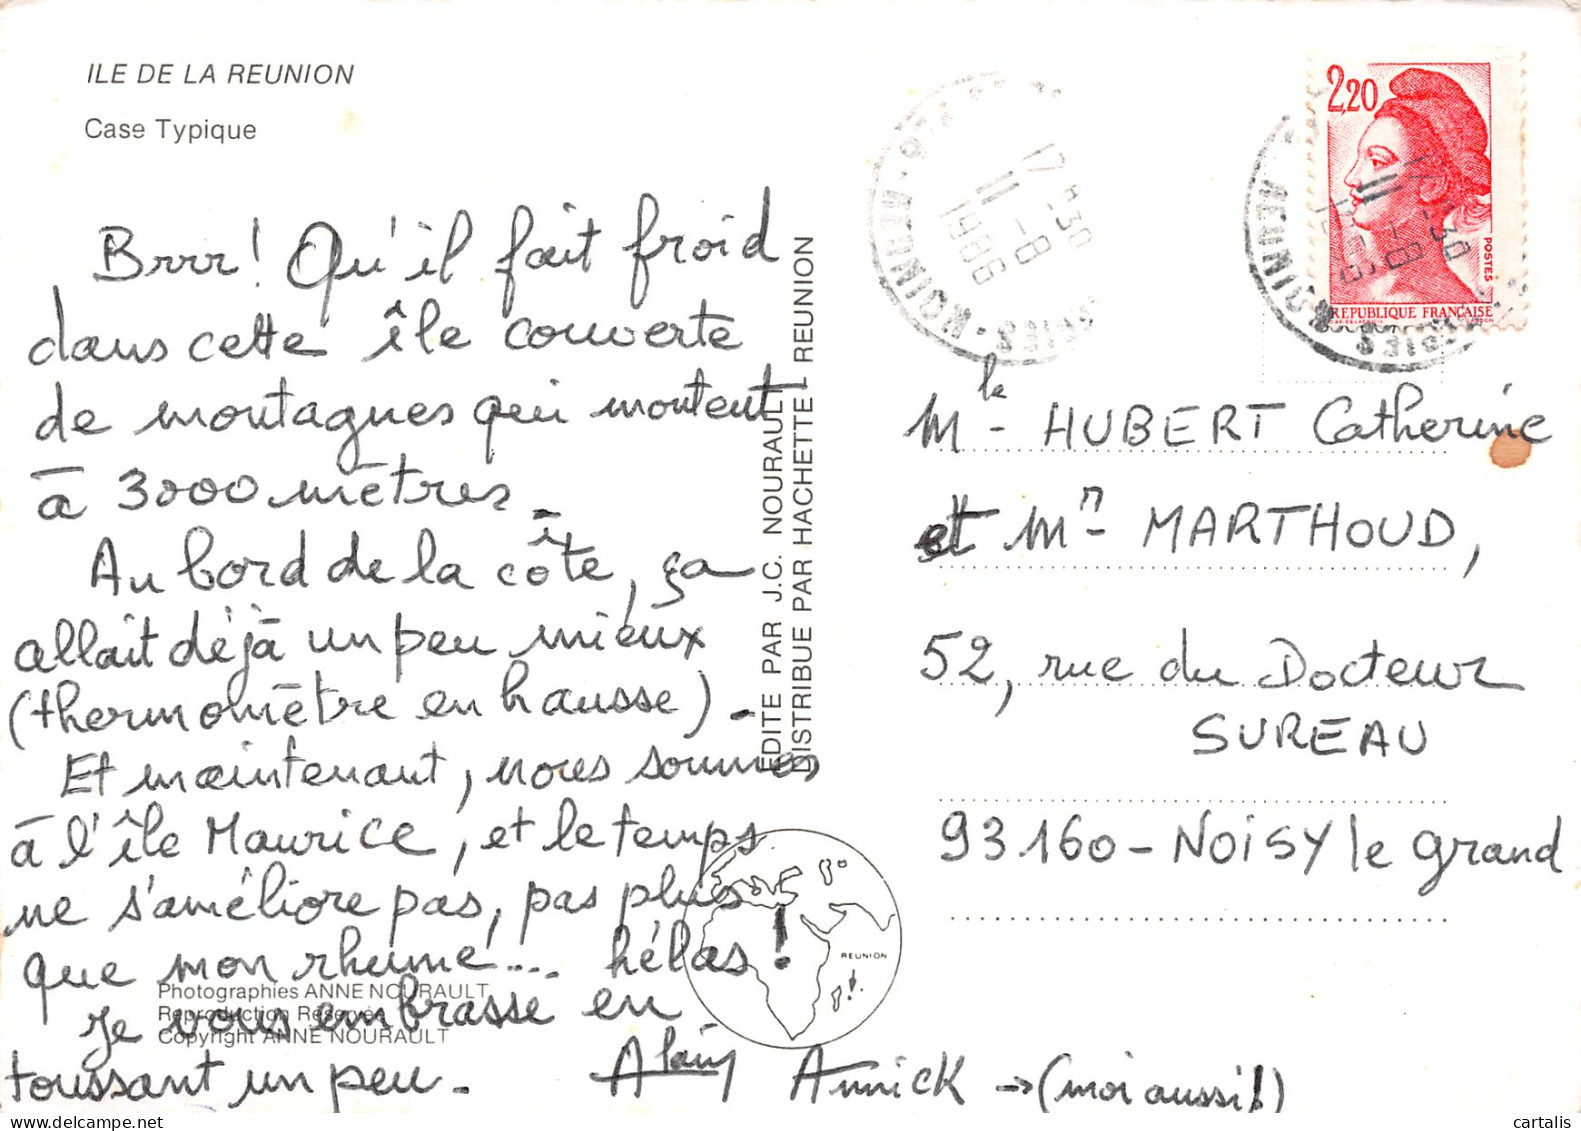 ILE DE LA REUNION
Case Typique
Brrr! Qu'il fait froid
dans cette île couverte
de montagnes qui montent
à 3000 mètres.
Au bord de la côte, ça
allait déjà un peu mieux
(thermomètre en hausse).
Et maintenant, nous sommes
à l'île Maurice, et le temps
ne s'améliore pas, pas plus
que mon rhume... hélas!
Je vous embrasse en
toussant un peu.
Alain
Annick → (moi aussi!)
Photographies ANNE NOURAULT
Reproduction Réservée
Copyright ANNE NOURAULT
EDITE PAR J.C. NOURAULT
DISTRIBUE PAR HACHETTE - REUNION
REUNION
17H30
11-8
1986
REUNION
2,20
POSTES
REPUBLIQUE FRANÇAISE
17H30
11-8
1986
REUNION
Mle HUBERT Catherine
et Mr MARTHOUD,
52, rue du Docteur
SUREAU
93160 - NOISY le grand
cartalis
delcampe.net